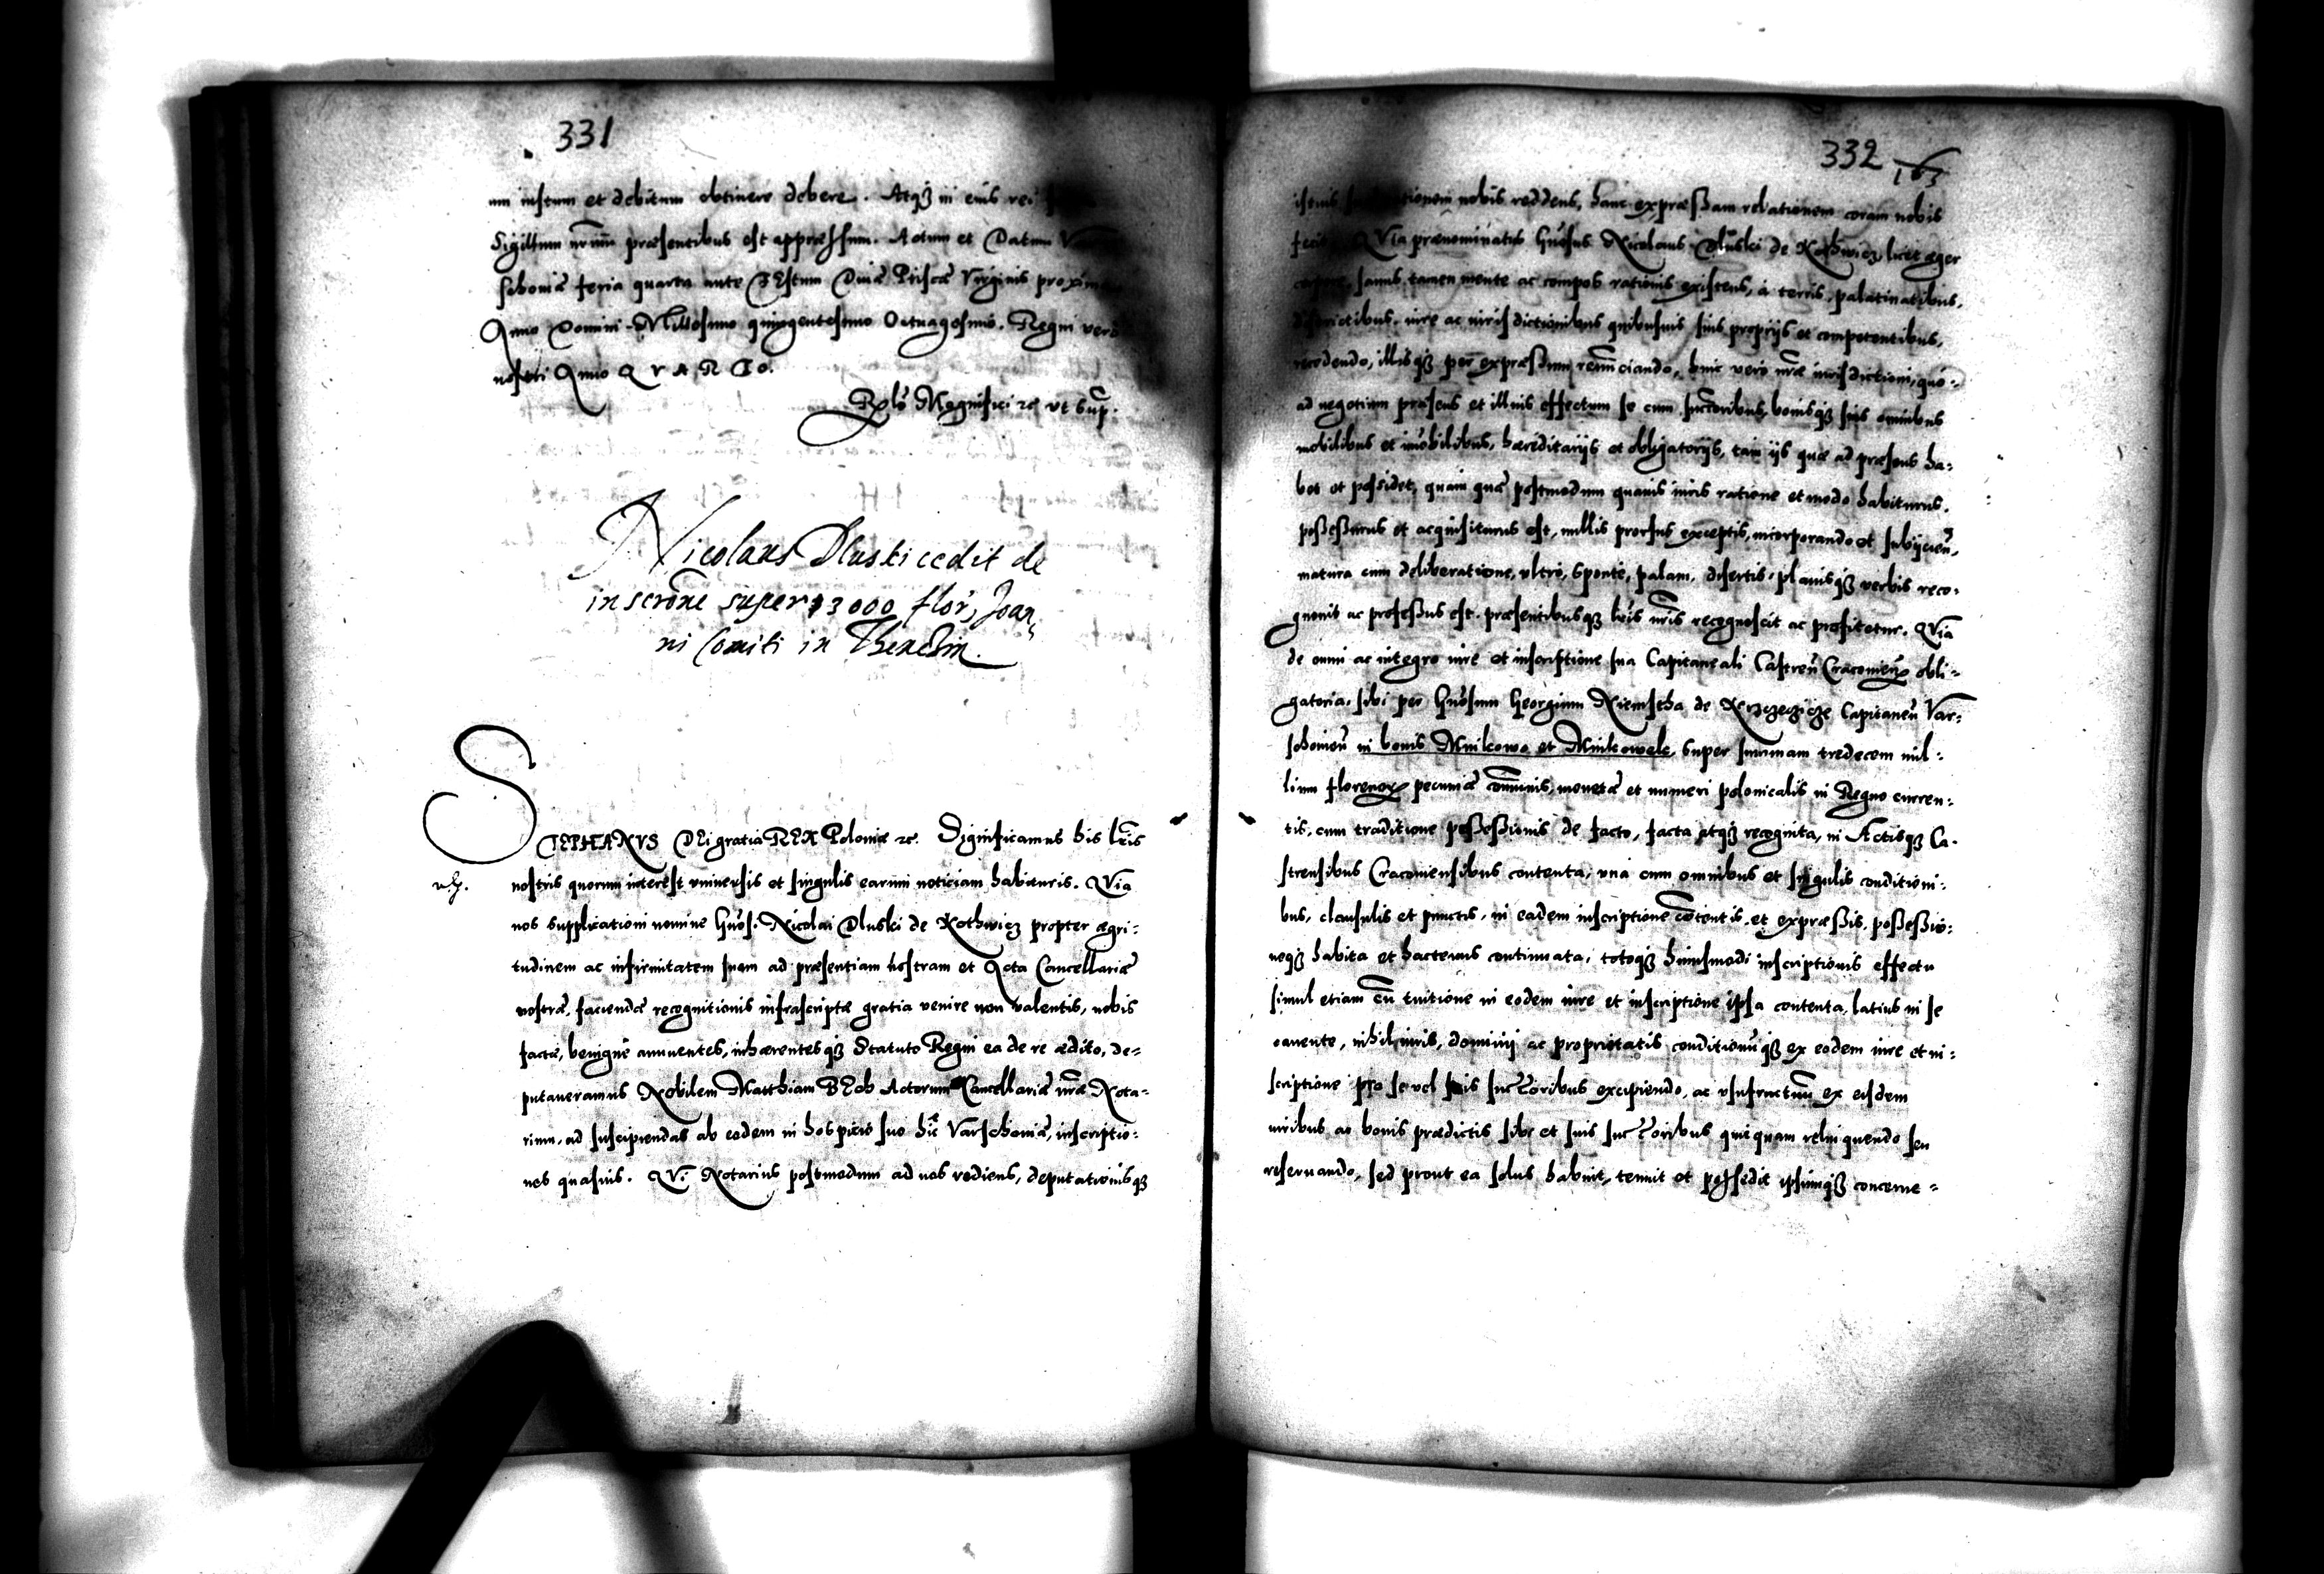 331
um iustum et debitum obtinere debere. Atq₃ in eius rei
Sigillum nr̃um præsentibus est appræssum. Actum et Datum
schouiæ feria quarta ante FEstum Diuæ Priscæ Virginis proxim
Anno Domini Millesimo quingentesimo Octuagesimo. Regni vero
nostri Anno QVARTO.
Rel̃o Magnifici ꝛc vt Sup.
Nicolaus Dluski cedit de
inscrõne super 13000 flor, Joan
ni Comiti in Thenczin.
STEPHANVS DEi gratia REX Poloniæ ꝛc. Significamus his lr̃is
nostris quorum interest vniuersis et singulis earum noticiam habituris. QVia
nos supplicationi nomine Gños. Nicolai Dluski de Kothwicz propter ægri-
tudinem ac infirmitatem suam ad præsentiam nostram et Acta Cancellariæ
nostræ, faciendæ recognitionis infrascriptæ gratia venire non valentis, nobis
factæ, benignè annuentes, inhærentesq₃ Statuto Regni ea de re ædito, de-
putaueramus Nobilem Matthiam BEch Actorum Cancellariæ nr̃æ Nota-
rium, ad suscipiendas ab eodem in hospicio suo hic Varschouiæ, inscriptio-
nes quasuis. QVi Notarius postmodum ad nos rediens, deputationisq₃
332
163
nobis reddens, hanc expræssam relationem coram nobis
QVia prænominatus Gñosus Nicolaus Dluski de Kothwicz, licet æger
sanus tamen mente ac compos rationis existens, à terris, palatinatibus,
districtibus, iure ac iurisdictionibus quibusuis suis proprijs et competentibus,
recedendo, illisq₃ per expræssum renunciando, huic vero nr̃æ iurisdictioni, quo-
ad negotium præsens et illius effectum se cum succ̃oribus, bonisq₃ suis omnibus
mobilibus et im̃obilibus, hæreditarijs et obligatorijs, tam ijs quæ ad præsens ha-
bet et possidet, quam quæ postmodum quauis iuris ratione et modo habiturus,
possessurus et acquisiturus est, nullis prorsus exceptis, incorporando et subijcieñ,
matura cum deliberatione, vltrò, sponte, palam, disertis, planisq₃ verbis reco-
gnouit ac professus est, præsentibusq₃ lr̃is nr̃is recognoscit ac profitetur. QVia
de omni ac integro iure et inscriptione sua Capitaneali Castreñ Cracouieñ obli-
gatoria, sibi per Gñosum Georgium Niemstha de Krzczeczicze Capitaneũ Var-
schouieñ in bonis Mnikowo et Mnikowek, super summam tredecem mil-
lium florenoꝝ pecuniæ com̃unis, monetæ et numeri polonicalis in Regno curren-
tis, cum traditione possessionis de facto, facta atq₃ recognita, in Actisq₃ Ca-
strensibus Cracouiensibus contenta, vna cum omnibus et singulis conditioni-
bus, clausulis et punctis, in eadem inscriptione cõtentis, et expræssis, possessio-
neq₃ habita et hactenus continuata, totoq₃ huiusmodi inscriptionis effectu
simul etiam cũ tuitione in eodem iure et inscriptione ipsa contenta, latius in se
canente, nihil iuris, dominij ac proprietatis conditionũq₃ ex eodem iure et in-
scriptione pro se vel suis succ̃oribus excipiendo, ac vsufructum ex eisdem
iuribus ac bonis prædictis sibi et suis succ̃oribus quicquam relinquendo seu
reseruando, sed prout ea solus habuit, tenuit et possedit ipsumq₃ concerne-